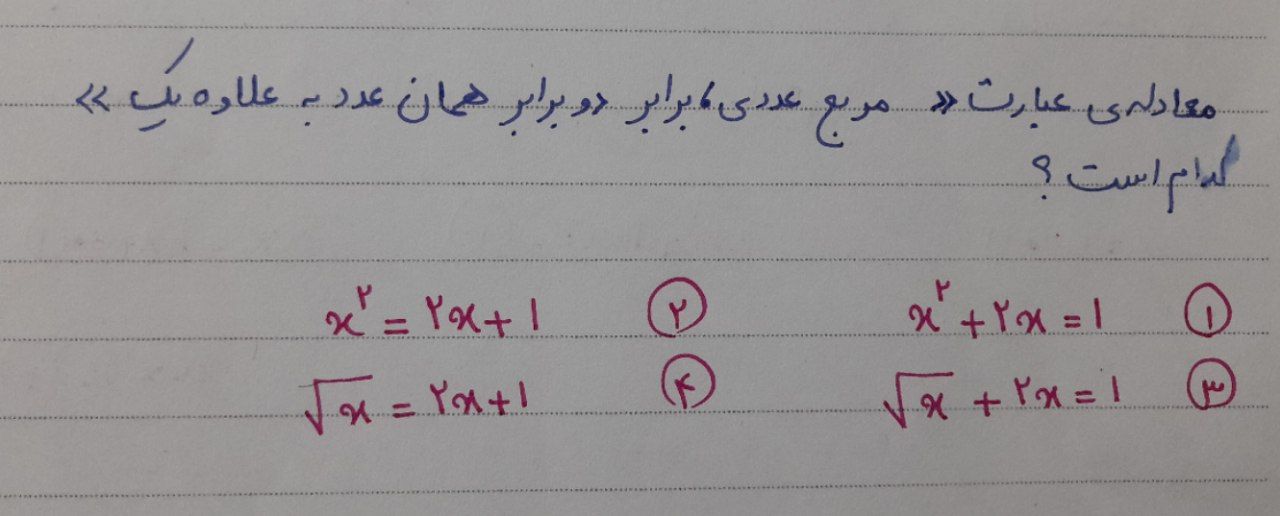 معادله‌ی عبارت « مربع عددی، برابر دو برابر همان عدد به علاوه یک »
کدام است؟
① x² + ۲x = ۱ ② x² = ۲x + ۱
③ √x + ۲x = ۱ ④ √x = ۲x + ۱